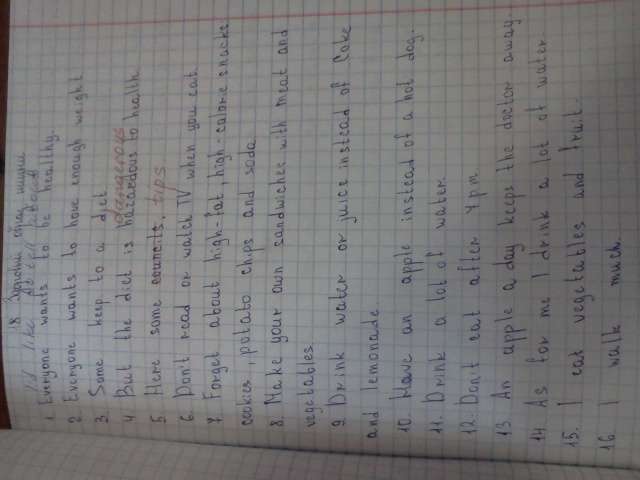 18 Здоровий образ жизни
I'd like to tell about
1 Everyone wants to be healthy.
2 Everyone wants to have enough weight
3. Some keep to a diet
dangerous
4 But the diet is hazardous to health
5 Here some councils. tips
6. Don't read or watch TV when you eat.
7. Forget about high-fat, high-calorie snacks
cookies, potato chips and soda.
8. Make your own sandwiches with meat and
vegetables
9. Drink water or juice instead of Coke
and lemonade.
10. Have an apple instead of a hot dog.
11. Drink a lot of water.
12. Don't eat after 7 pm.
13. An apple a day keeps the doctor away.
14. As for me I drink a lot of water
15. I eat vegetables and fruit.
16 I walk much.